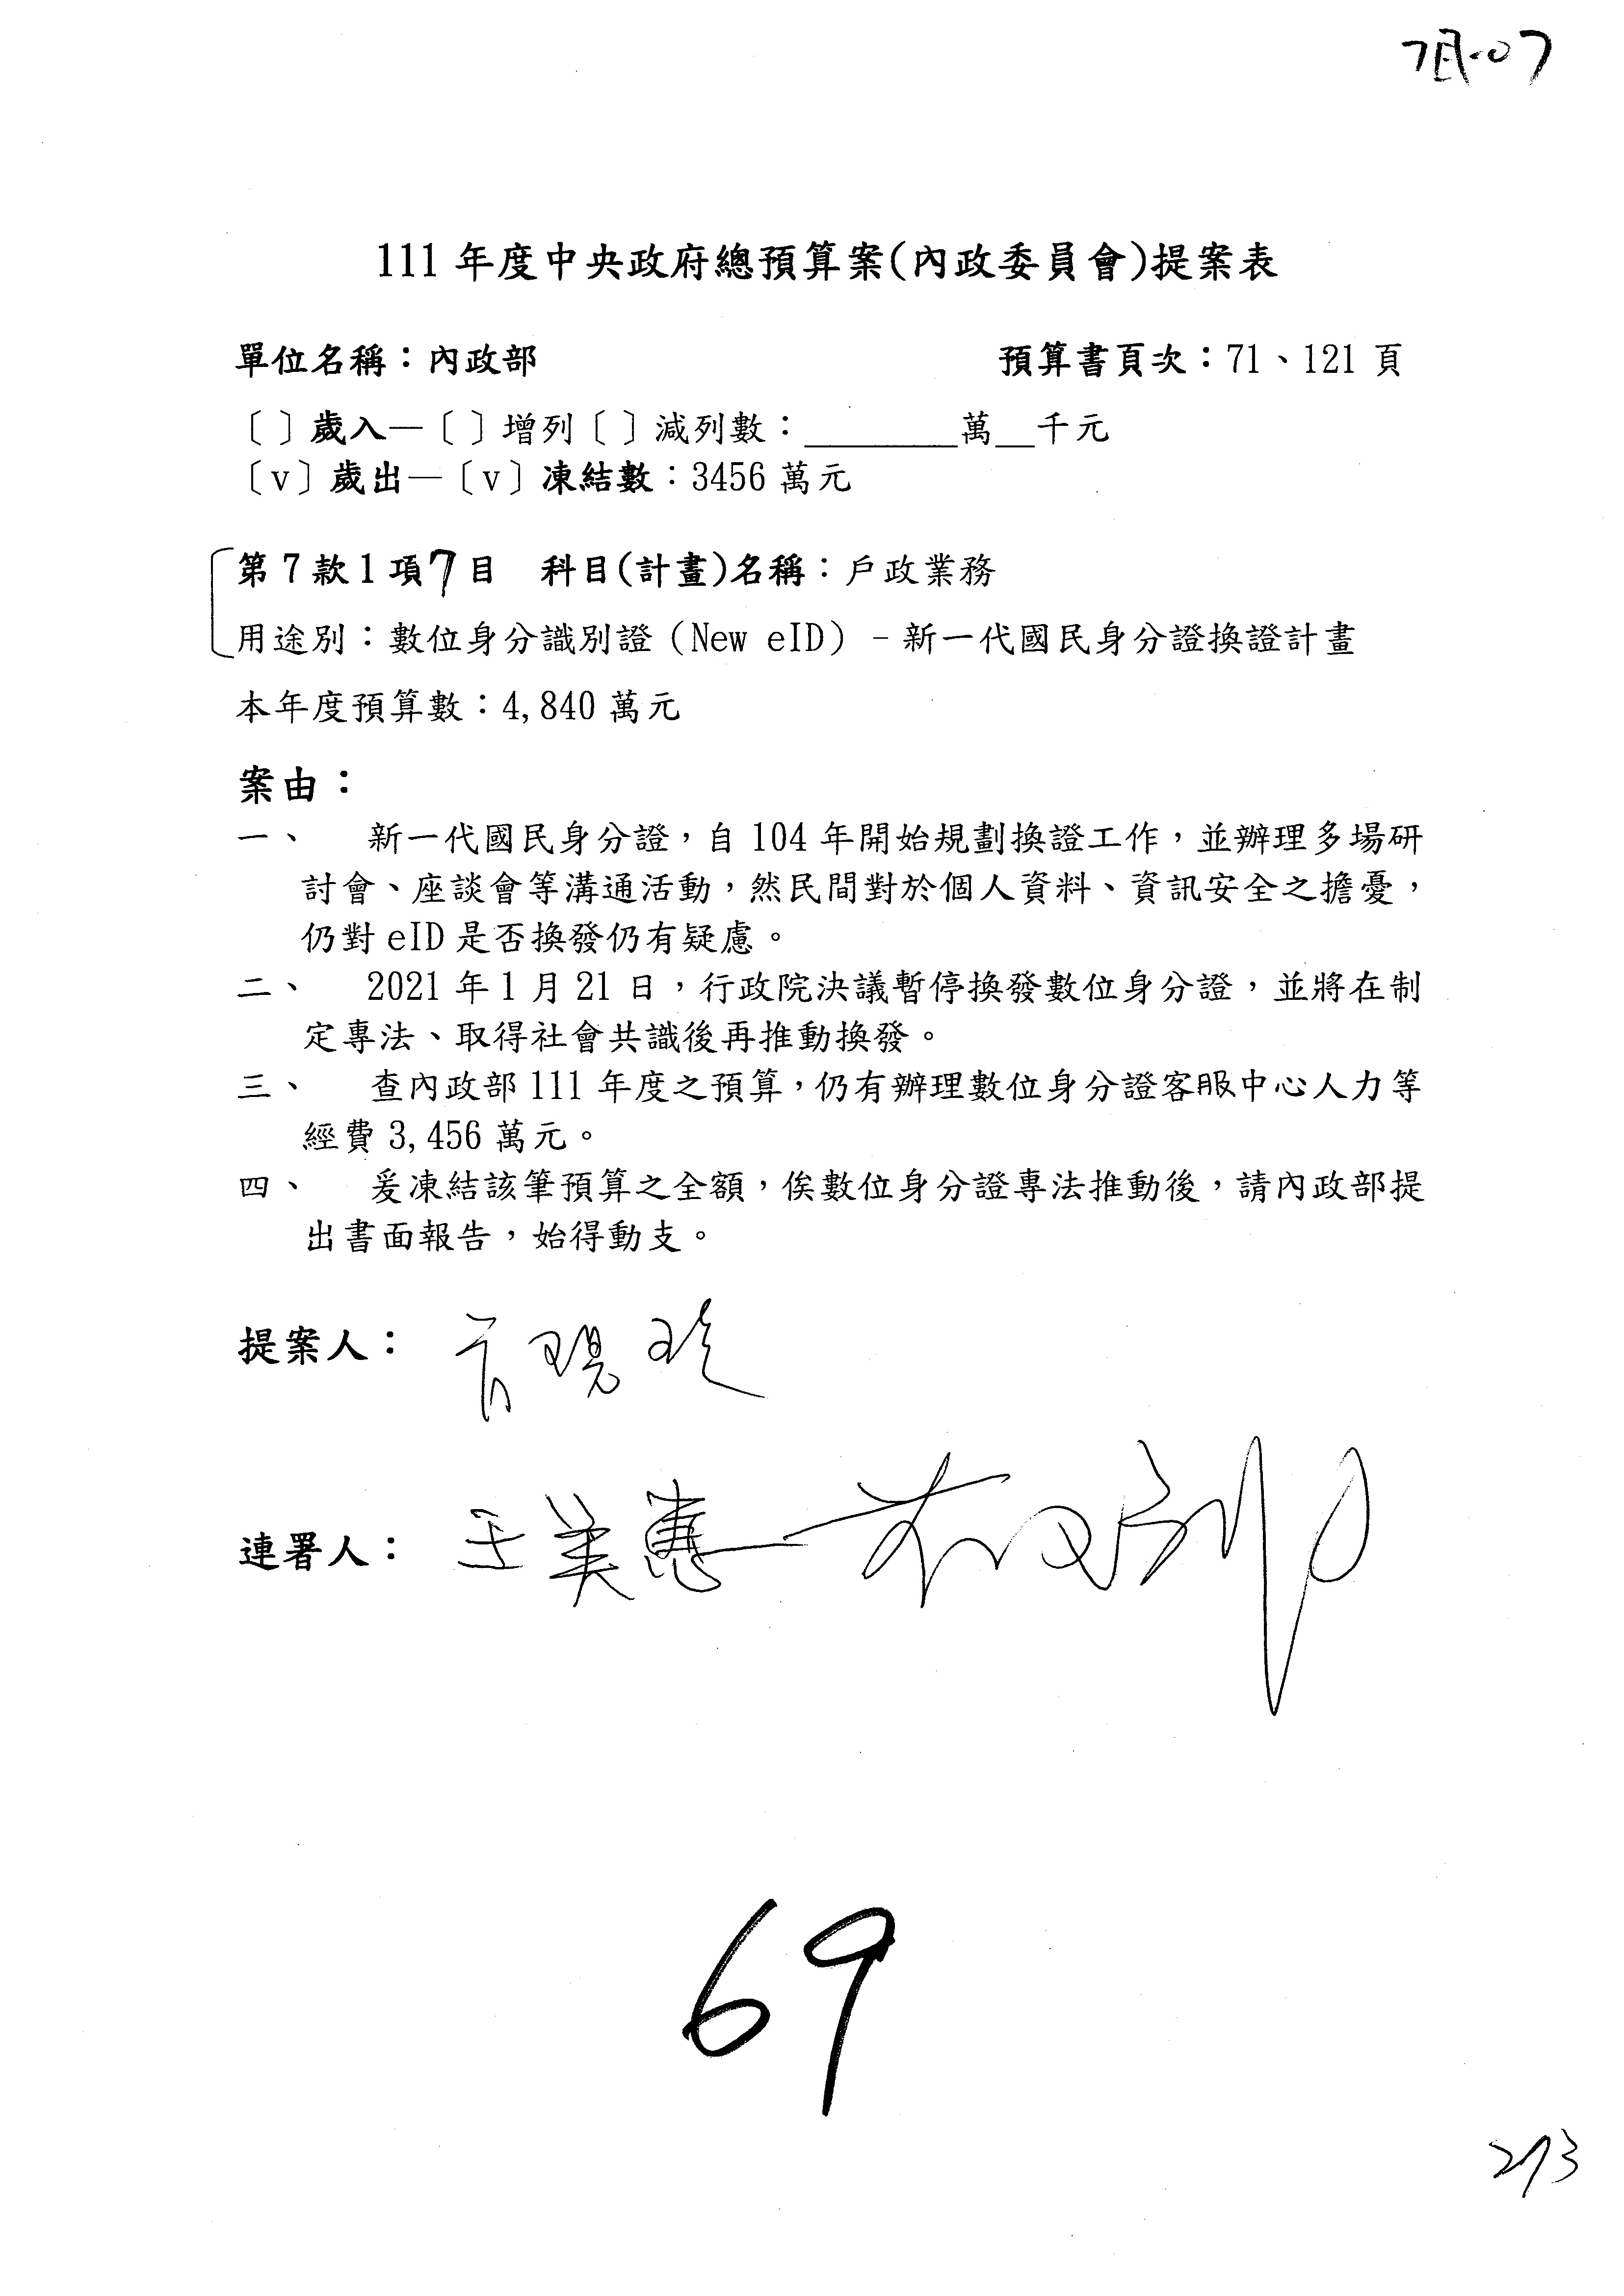 7民-07
111年度中央政府總預算案(內政委員會)提案表
單位名稱：內政部 預算書頁次：71、121頁
〔 〕歲入—〔 〕增列〔 〕減列數：________萬__千元
〔v〕歲出—〔v〕凍結數：3456萬元
第7款1項7目 科目(計畫)名稱：戶政業務
用途別：數位身分識別證（New eID）-新一代國民身分證換證計畫
本年度預算數：4,840萬元
案由：
一、 新一代國民身分證，自104年開始規劃換證工作，並辦理多場研
討會、座談會等溝通活動，然民間對於個人資料、資訊安全之擔憂，
仍對eID是否換發仍有疑慮。
二、 2021年1月21日，行政院決議暫停換發數位身分證，並將在制
定專法、取得社會共識後再推動換發。
三、 查內政部111年度之預算，仍有辦理數位身分證客服中心人力等
經費3,456萬元。
四、 爰凍結該筆預算之全額，俟數位身分證專法推動後，請內政部提
出書面報告，始得動支。
提案人：
連署人： 王美惠
69
293